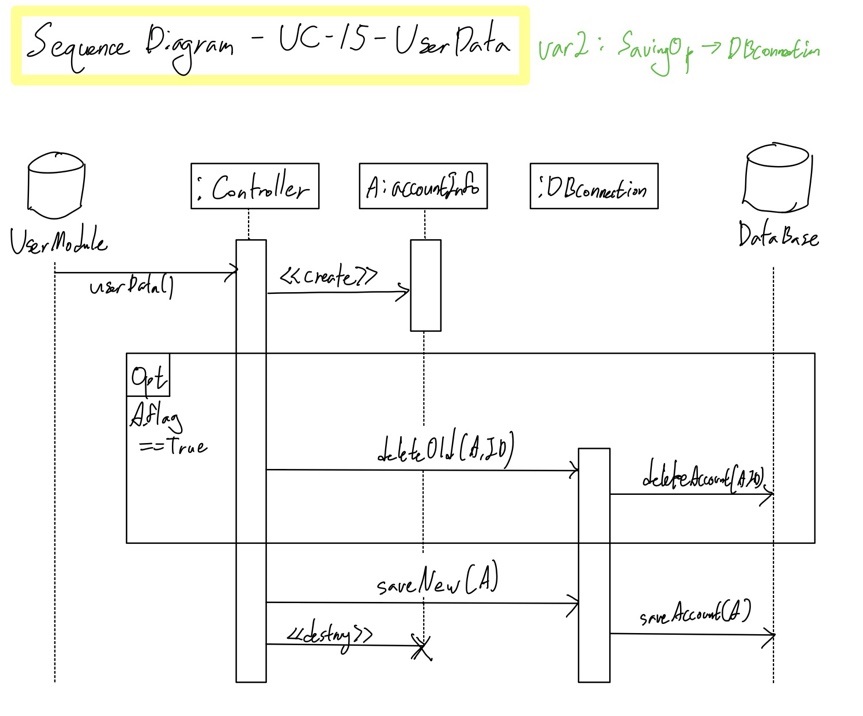 Sequence Diagram - UC-15-UserData
var2: SavingOp → DBconnection
:Controller
A:accountInfo
:DBconnection
UserModule
DataBase
userData()
<<create>>
Opt
A.flag
==True
deleteOld(A.ID)
deleteAccount(A.ID)
saveNew(A)
saveAccount(A)
<<destroy>>